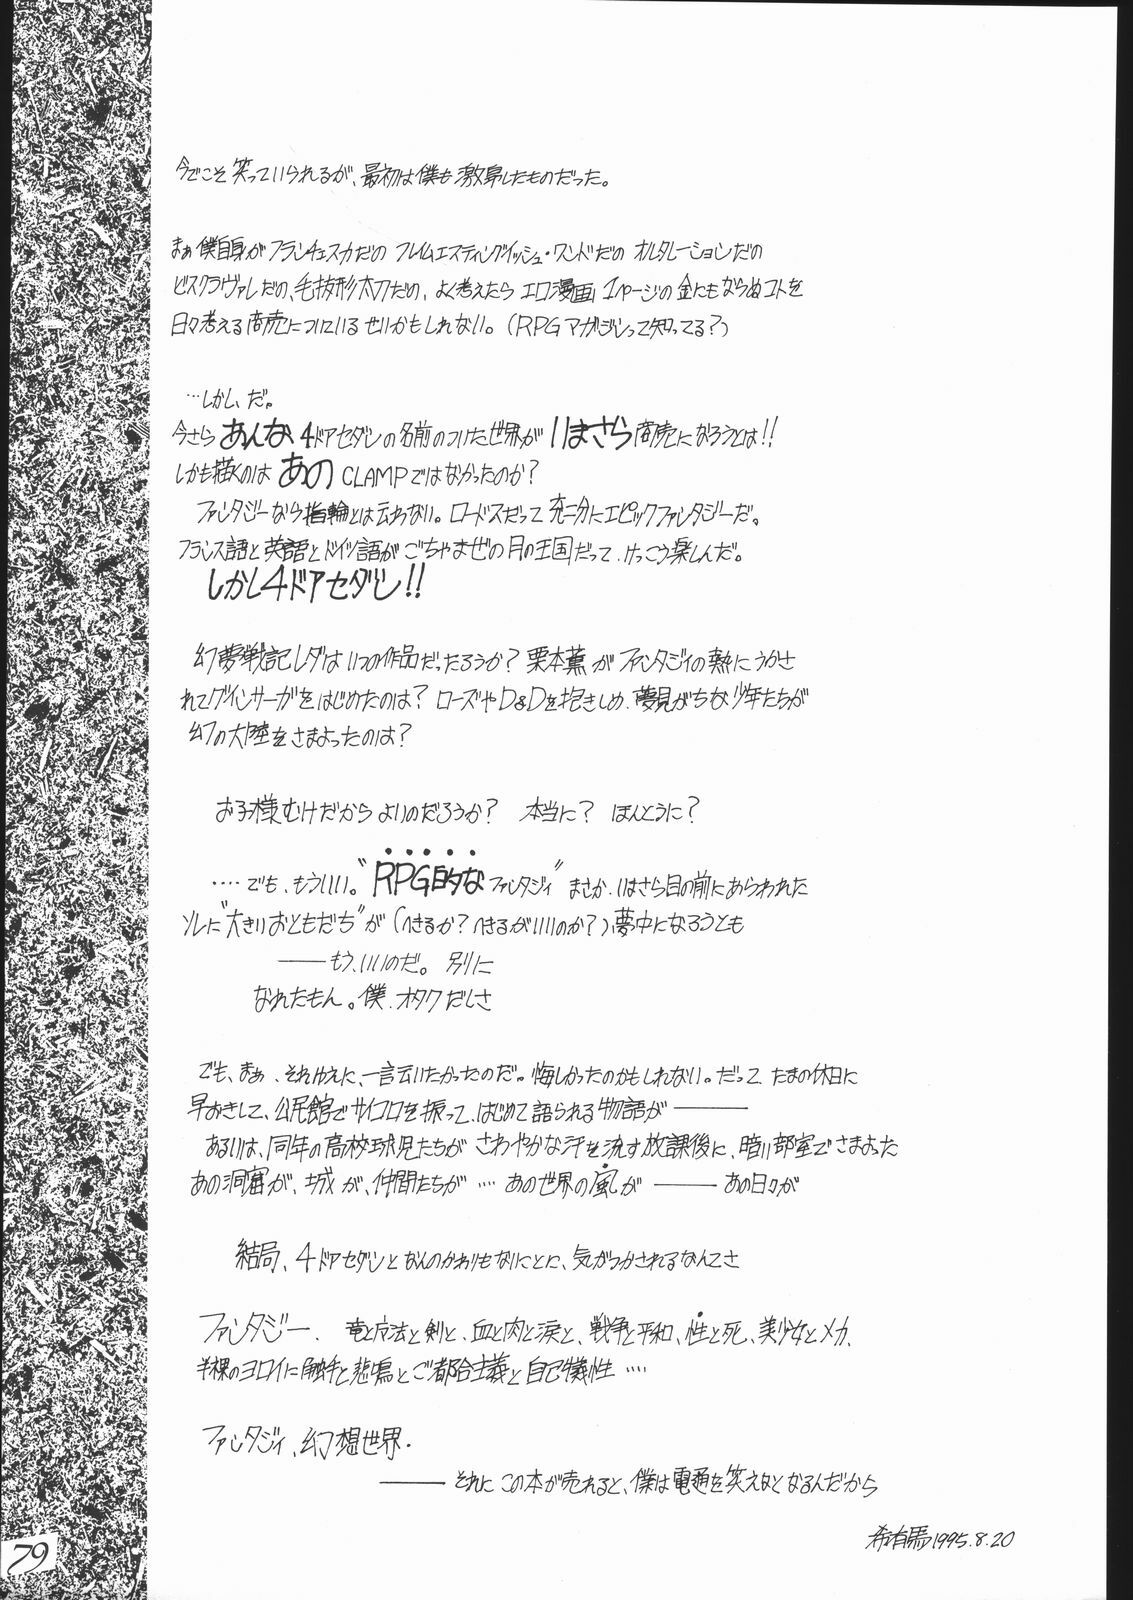 今でこそ笑っていられるが、最初は僕も激昂したものだった。
まぁ僕自身がフランチェスカだの フレイムエスティングイッシュ・ワンドだの オルタレーションだの
ビスクラヴァレだの、毛抜形太刀だの、よく考えたら エロ漫画 1ページの金にもならぬコトを
日々考える商売についているせいかもしれない。(RPGマガジンって知ってる?)
…しかし、だ。
今さら あんな 4ドアセダンの名前のついた世界が いまさら商売になろうとは!!
しかも描くのは あの CLAMPではなかったのか?
ファンタジーなら指輪とは云わない。ロードスだって 充二分にエピックファンタジーだ。
フランス語と英語とドイツ語がごちゃまぜの月の王国だって、けっこう楽しんだ。
しかし4ドアセダン!!
幻夢戦記レダはいつの作品だったろうか? 栗本薫がファンタジィの熱にうかさ
れてグインサーガをはじめたのは? ローズやD&Dを抱きしめ、夢見がちな少年たちが
幻の大陸をさまよったのは?
お子様むけだからよいのだろうか? 本当に? ほんとうに?
‥‥でも、もういい。“RPG的なファンタジィ” まさか、いまさら目の前にあらわれた
ソレに“大きいおともだち”が(へきるか?へきるがいいのか?)夢中になろうとも
――もう、いいのだ。別に
なれたもん。僕、オタクだしさ
でも、まぁ、それゆえに、一言云いたかったのだ。悔しかったのかもしれない。だって たまの休日に
早おきして、公民館でサイコロを振って、はじめて語られる物語が――
あるいは、同年の高校球児たちが さわやかな汗を流す放課後に、暗い部室でさまよった
あの洞窟が、城が、仲間たちが‥‥あの世界の風が――あの日々が
結局、4ドアセダンとなんのかわりもないことに、気がつかされるなんてさ
ファンタジー、竜と魔法と剣と、血と肉と涙と、戦争と平和、性と死、美少女とメカ、
半裸のヨロイに触手と悲鳴とご都合主義と自己犠牲‥‥
ファンタジィ、幻想世界・
――それに この本が売れると、僕は電通を笑えなくなるんだから
希有馬1995.8.20
79